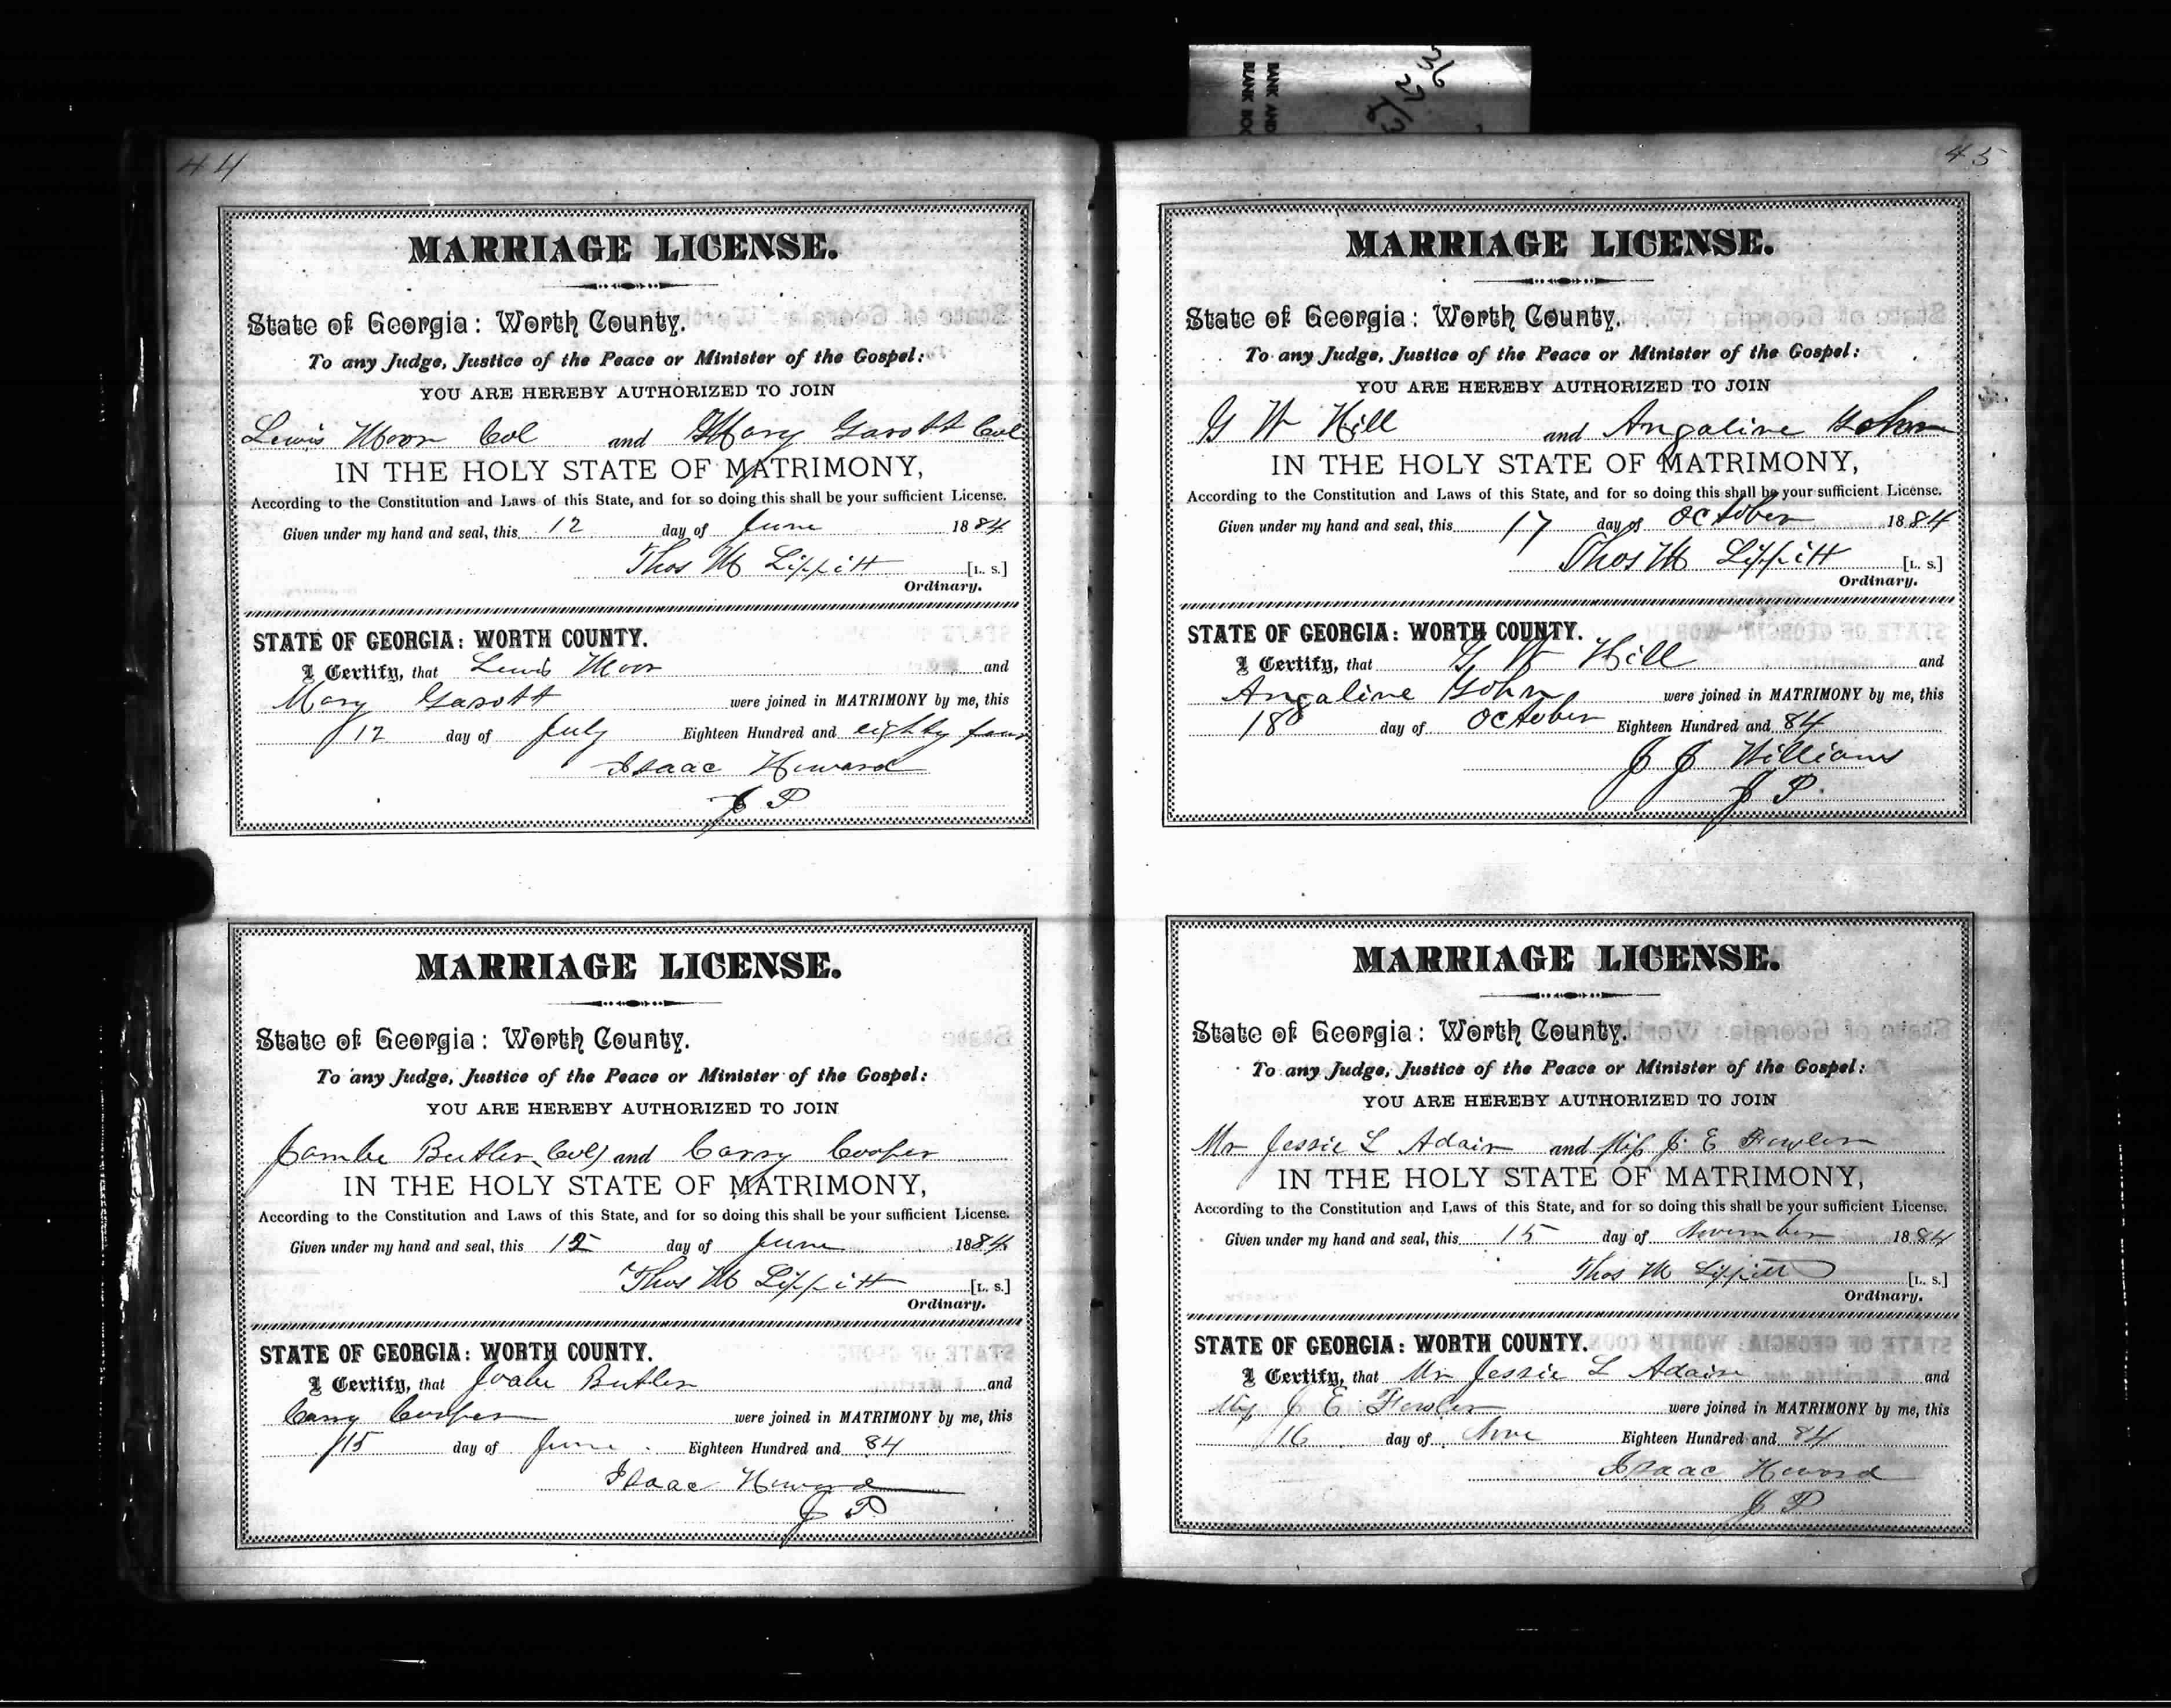 36
27/3
BANK AND
BLANK BOO
44
MARRIAGE LICENSE.
State of Georgia: Worth County.
To any Judge, Justice of the Peace or Minister of the Gospel:
YOU ARE HEREBY AUTHORIZED TO JOIN
Lewis Moor Col and Mary Garott Col
IN THE HOLY STATE OF MATRIMONY,
According to the Constitution and Laws of this State, and for so doing this shall be your sufficient License.
Given under my hand and seal, this 12 day of June 1884
Thos M Lippitt [L. S.]
Ordinary.
STATE OF GEORGIA: WORTH COUNTY.
I Certify, that Lewis Moor and
Mary Garott were joined in MATRIMONY by me, this
12 day of July Eighteen Hundred and eighty four
Isaac Howard
J P
MARRIAGE LICENSE.
State of Georgia: Worth County.
To any Judge, Justice of the Peace or Minister of the Gospel:
YOU ARE HEREBY AUTHORIZED TO JOIN
Butler, Col) and Carry Cooper
IN THE HOLY STATE OF MATRIMONY,
According to the Constitution and Laws of this State, and for so doing this shall be your sufficient License.
Given under my hand and seal, this 12 day of June 1884
Thos M Lippitt [L. S.]
Ordinary.
STATE OF GEORGIA: WORTH COUNTY.
I Certify, that Butler and
Carry Cooper were joined in MATRIMONY by me, this
15 day of June Eighteen Hundred and 84
Isaac Howard
J P
45
MARRIAGE LICENSE.
State of Georgia: Worth County.
To any Judge, Justice of the Peace or Minister of the Gospel:
YOU ARE HEREBY AUTHORIZED TO JOIN
G W Hill and Angaline
IN THE HOLY STATE OF MATRIMONY,
According to the Constitution and Laws of this State, and for so doing this shall be your sufficient License.
Given under my hand and seal, this 17 day of October 1884
Thos M Lippitt [L. S.]
Ordinary.
STATE OF GEORGIA: WORTH COUNTY.
I Certify, that G W Hill and
Angaline were joined in MATRIMONY by me, this
18 day of October Eighteen Hundred and 84
J J Williams
J P.
MARRIAGE LICENSE.
State of Georgia: Worth County.
To any Judge, Justice of the Peace or Minister of the Gospel:
YOU ARE HEREBY AUTHORIZED TO JOIN
Mr Jessie L Adair and Miss J. E Fowler
IN THE HOLY STATE OF MATRIMONY,
According to the Constitution and Laws of this State, and for so doing this shall be your sufficient License.
Given under my hand and seal, this 15 day of November 1884
Thos M Lippitt [L. S.]
Ordinary.
STATE OF GEORGIA: WORTH COUNTY.
I Certify, that Mr Jessie L Adair and
Miss J E Fowler were joined in MATRIMONY by me, this
16 day of Nove Eighteen Hundred and 84
Isaac Howard
J P